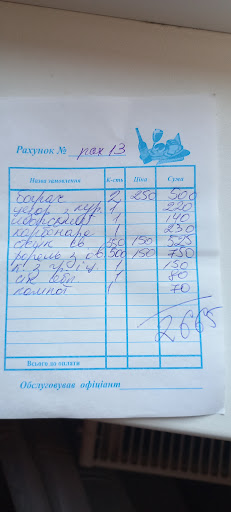 Рахунок № рах 13
Назва замовлення К-сть Ціна Сума
бограч 2 250 500
цезар з кур. 1 220
1 140
карбонара 1 230
350 150 525
форель з ов 500 150 750
к з гриб 1 150
сік 1 80
компот 1 70
2665
Всього до сплати
Обслуговував офіціант